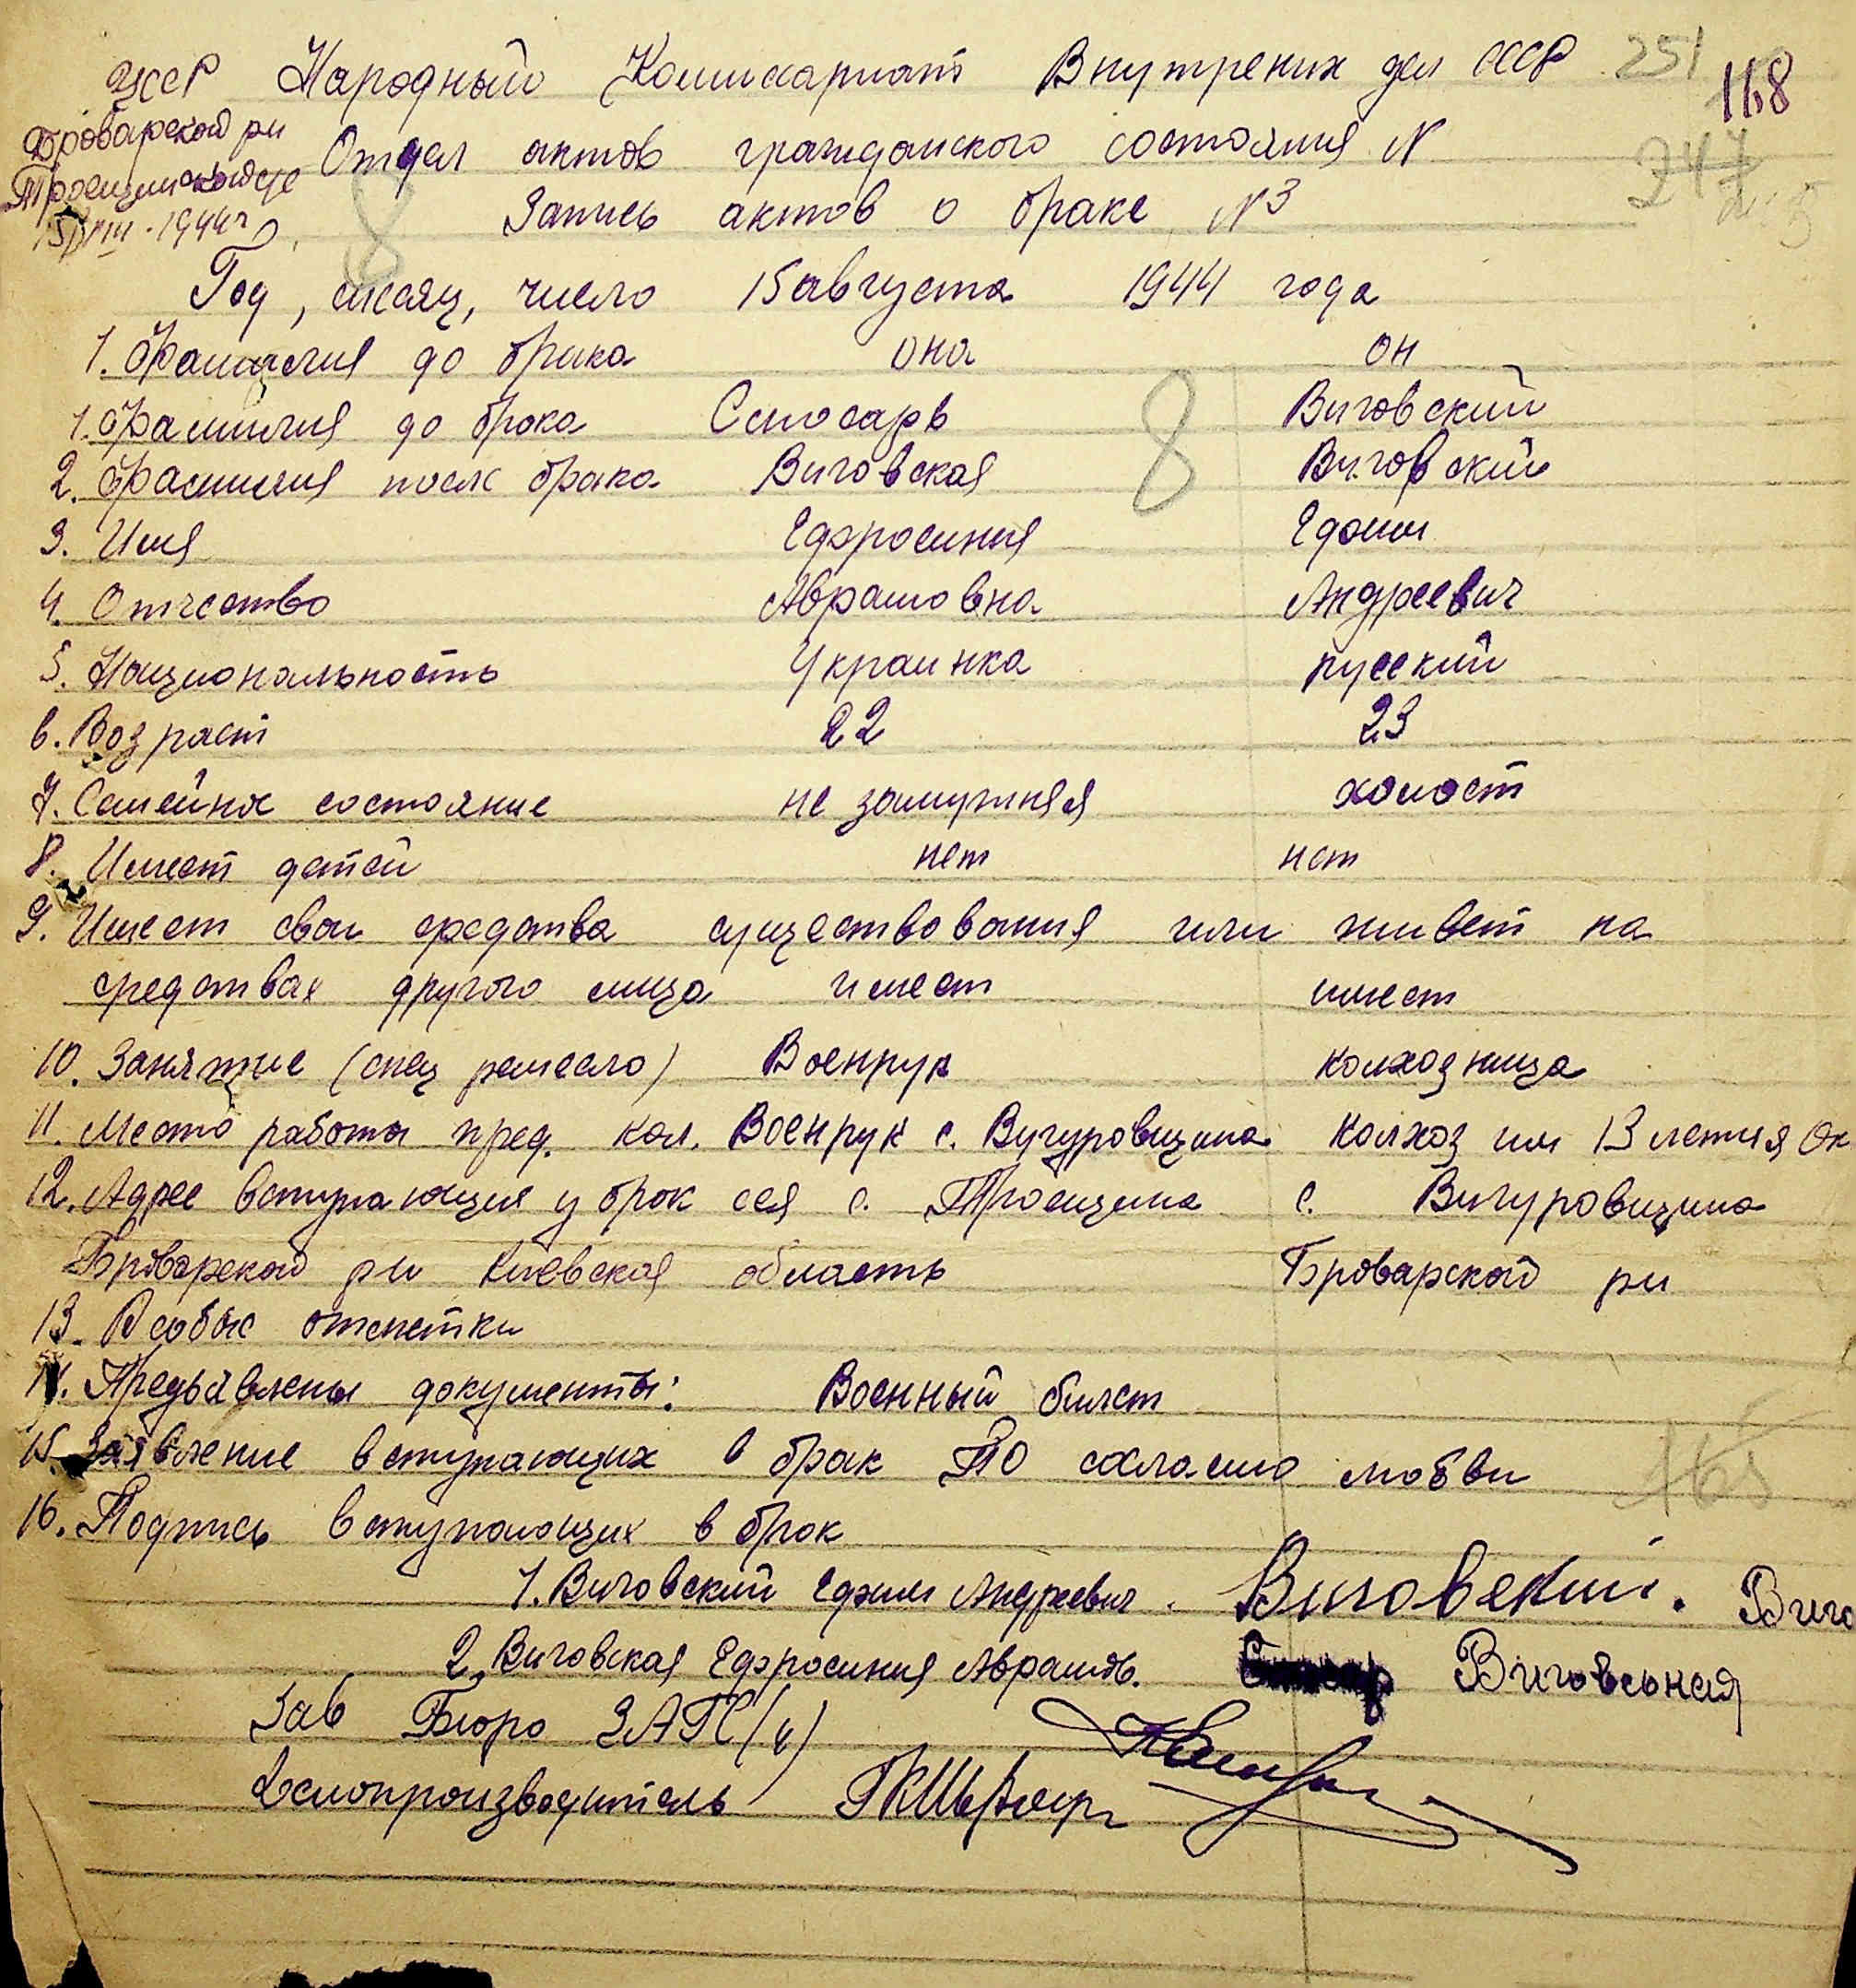 УССР Народный Комиссариат Внутрених дел СССР 251
118
Броварской рн
Отдел актов гражданского состояния N
247
Троещинской с/с
15/VIII-1944г
Запись актов о браке N3
8
Год, месяц, число 15 августа 1944 года
1. Фамилия до брака она он
1. Фамилия до брака Слюсарь Виговский
8
2. Фамилия после брака Виговская Виговский
3. Имя Ефросиния Ефим
4. Отчество Аврамовна Андреевич
5. Национальность Украинка русский
6. Возраст 22 23
7. Семейное состояние не замужняя холост
8. Имеет детей нет нет
9. Имеет свои средства существования или живет на
средствах другого лица имеет имеет
10. Занятие (спец ремесло) Военрук колхозница
11. Место работы пред. кол. Военрук с. Вигуровщина Колхоз им 13 летия Ок
12. Адрес вступающия у брак с. Троещина с. Вигуровщина
Броварской рн Киевская область Броварской рн
13. Особые отметки
14. Предъявлены документы: Военный билет
15. Заявление вступающих в брак ПО любви
16. Подпись вступающих в брак
1. Виговский Ефим Андреевич. Виговский. Виго
2. Виговская Ефросиния Аврамов. Виговськая
Зав Бюро ЗАГС
Делопроизводитель